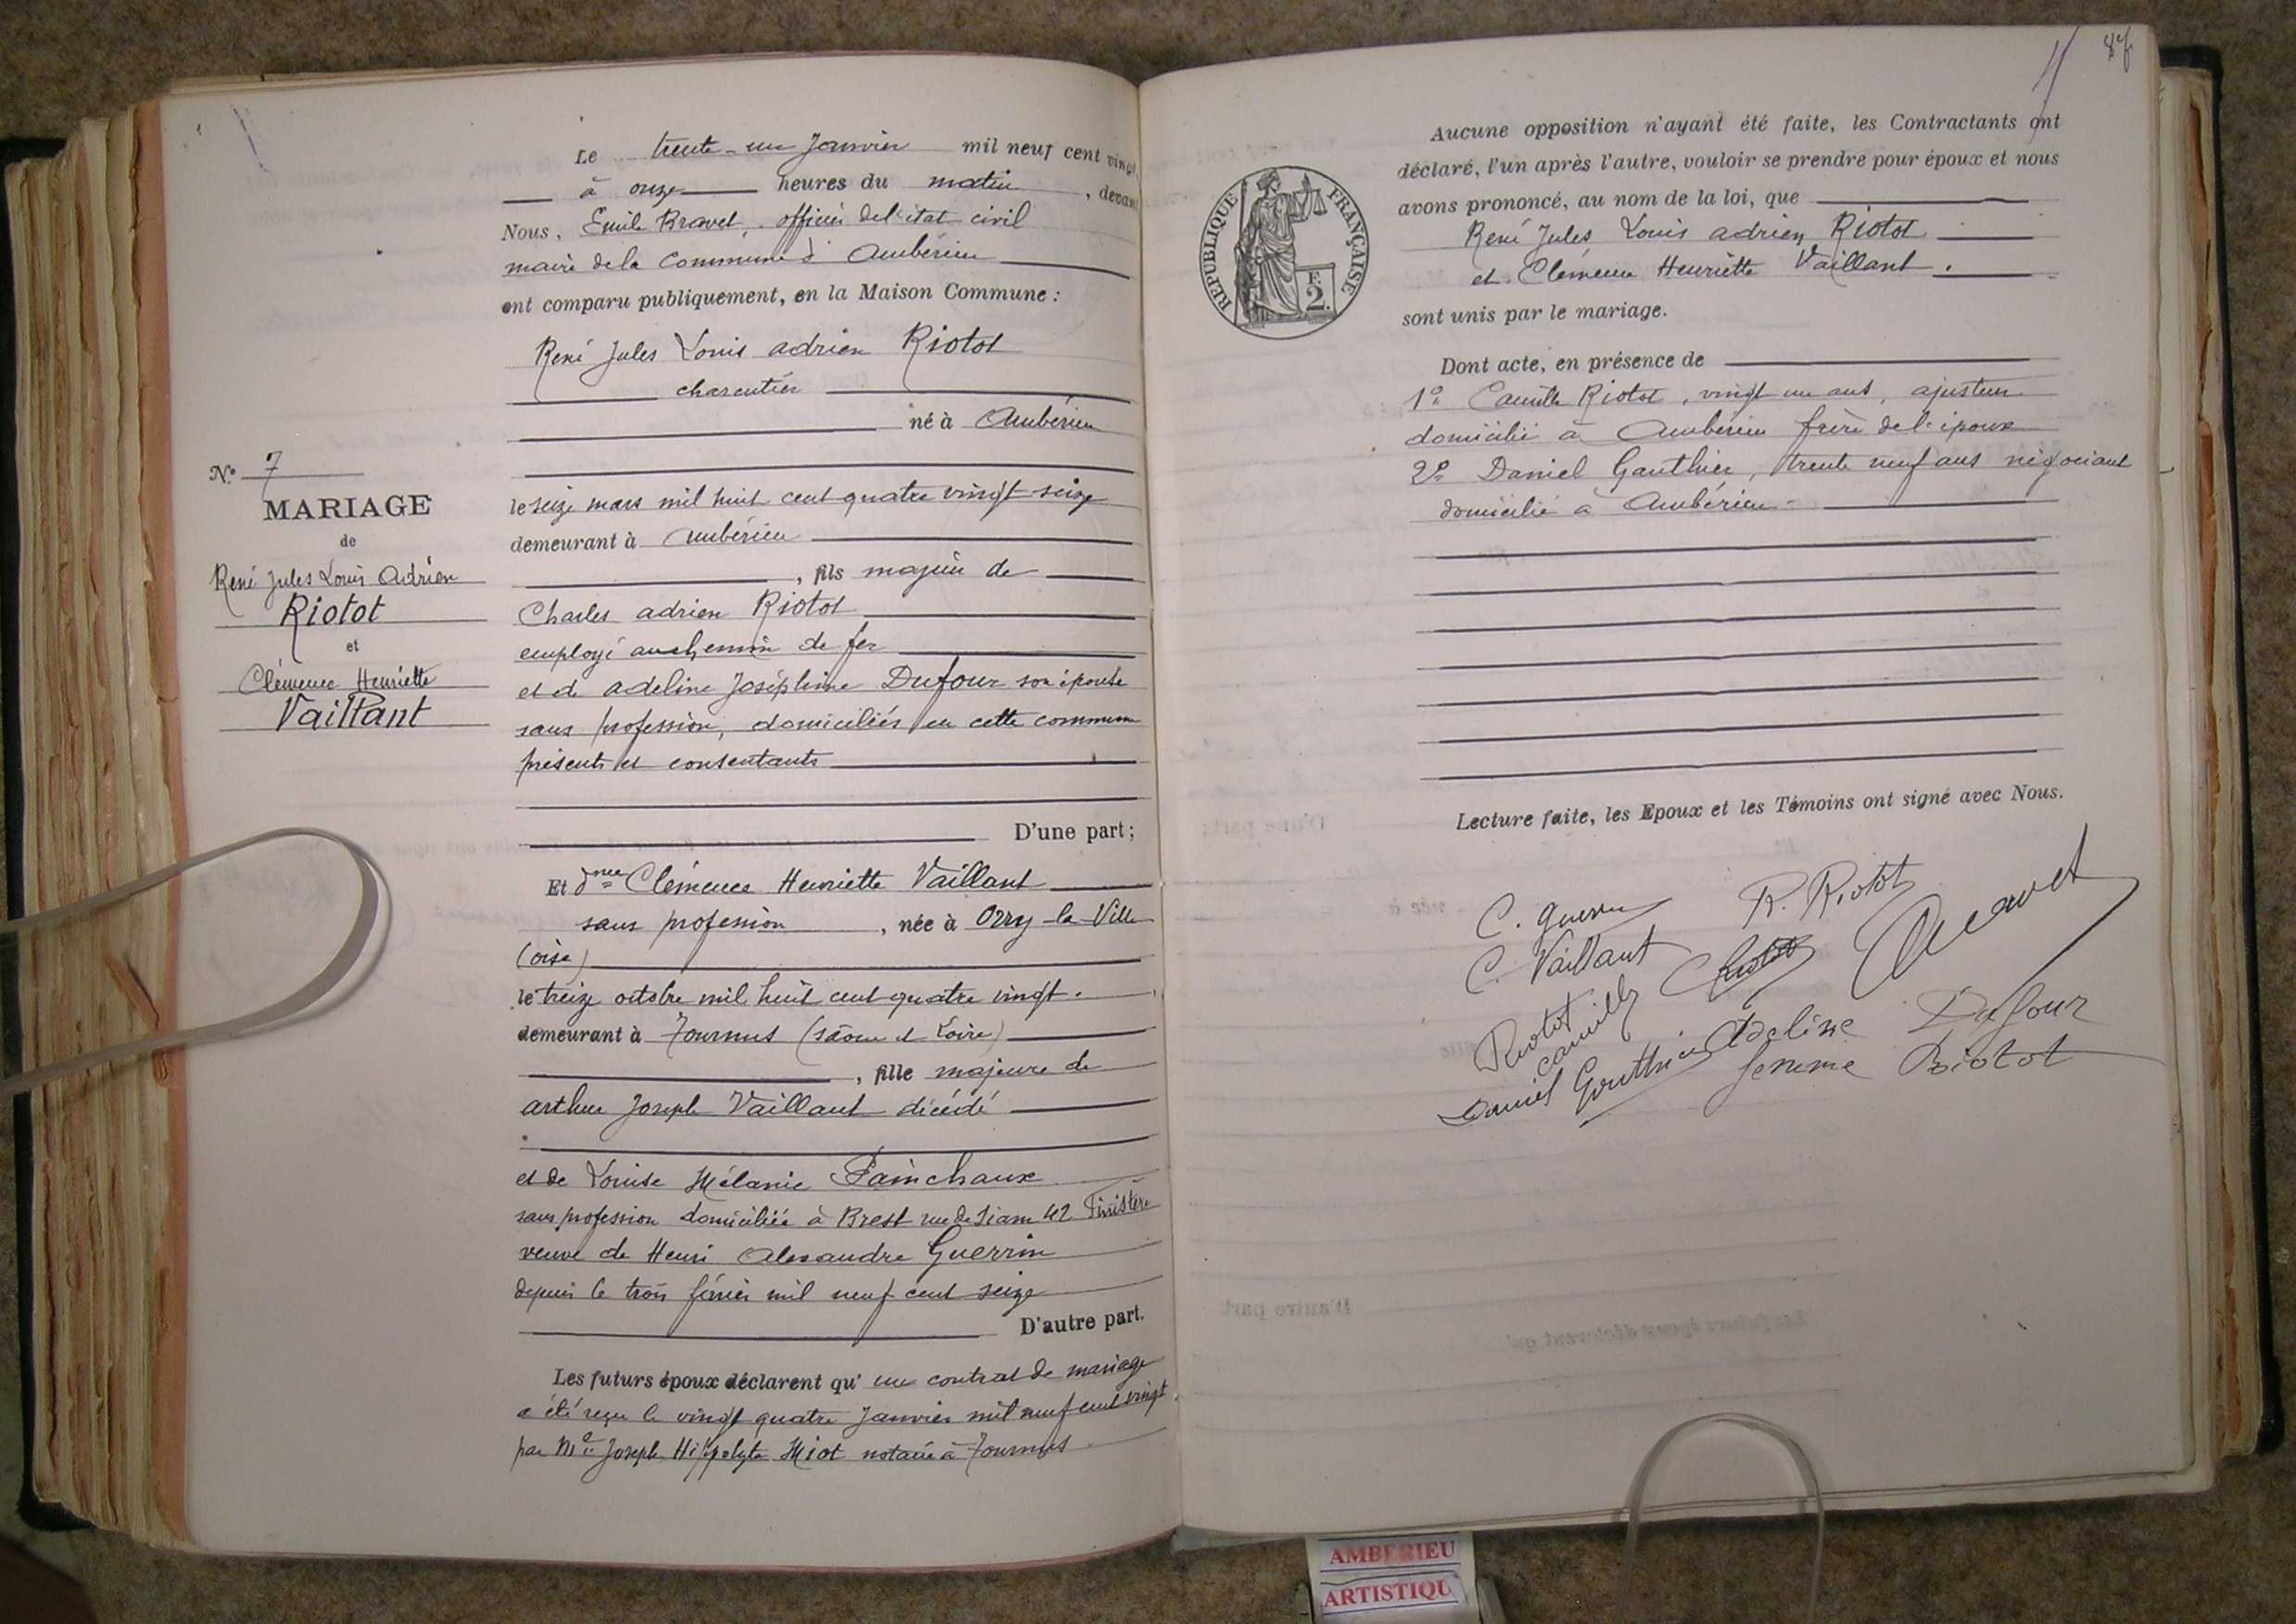 Le trente-un Janvier mil neuf cent vingt,
à onze heures du matin, devant
Nous, Emile Bravet, officier de l'état civil
maire de la Commune d'Ambérieu
ont comparu publiquement, en la Maison Commune :
René Jules Louis Adrien Riotot
charcutier
né à Ambérieu
le seize mars mil huit cent quatre vingt seize
demeurant à Ambérieu
, fils majeur de
Charles Adrien Riotot
employé au chemin de fer
et de Adeline Joséphine Dufour son épouse
sans profession, domiciliés en cette commune
présents et consentants
D'une part ;
Et dme Clémence Henriette Vaillant
sans profession, née à Orry-la-Ville
(oise)
le treize octobre mil huit cent quatre vingt.
demeurant à Tournus (Saône et Loire)
, fille majeure de
arthur Joseph Vaillant décédé
et de Louise Mélanie Painchaux
sans profession domiciliée à Brest rue de Siam 42 Finistère
veuve de Henri Alexandre Guerrin
depuis le trois février mil neuf cent seize
D'autre part.
Les futurs époux déclarent qu'un contrat de mariage
a été reçu le vingt quatre Janvier mil neuf cent vingt
par Me Joseph Hippolyte Miot notaire à Tournus
No 7
MARIAGE
de
René Jules Louis Adrien
Riotot
et
Clémence Henriette
Vaillant
Aucune opposition n'ayant été faite, les Contractants ont
déclaré, l'un après l'autre, vouloir se prendre pour époux et nous
avons prononcé, au nom de la loi, que
René Jules Louis adrien Riotot
et Clémence Henriette Vaillant.
sont unis par le mariage.
Dont acte, en présence de
1° Camille Riotot, vingt un ans, ajusteur
domicilié à Ambérieu frère de l'époux
2° Daniel Gauthier, trente neuf ans négociant
domicilié à Ambérieu
Lecture faite, les Epoux et les Témoins ont signé avec Nous.
C. Guerrin
R. Riotot
C. Vaillant
Riotot
Bravet
Riotot
Camille
Adeline Dufour
Daniel Gauthier
femme Riotot
RÉPUBLIQUE FRANÇAISE
F.
2.
AMBERIEU
ARTISTIQU